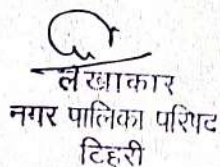 लेखाकार
नगर पालिका परिषद
टिहरी